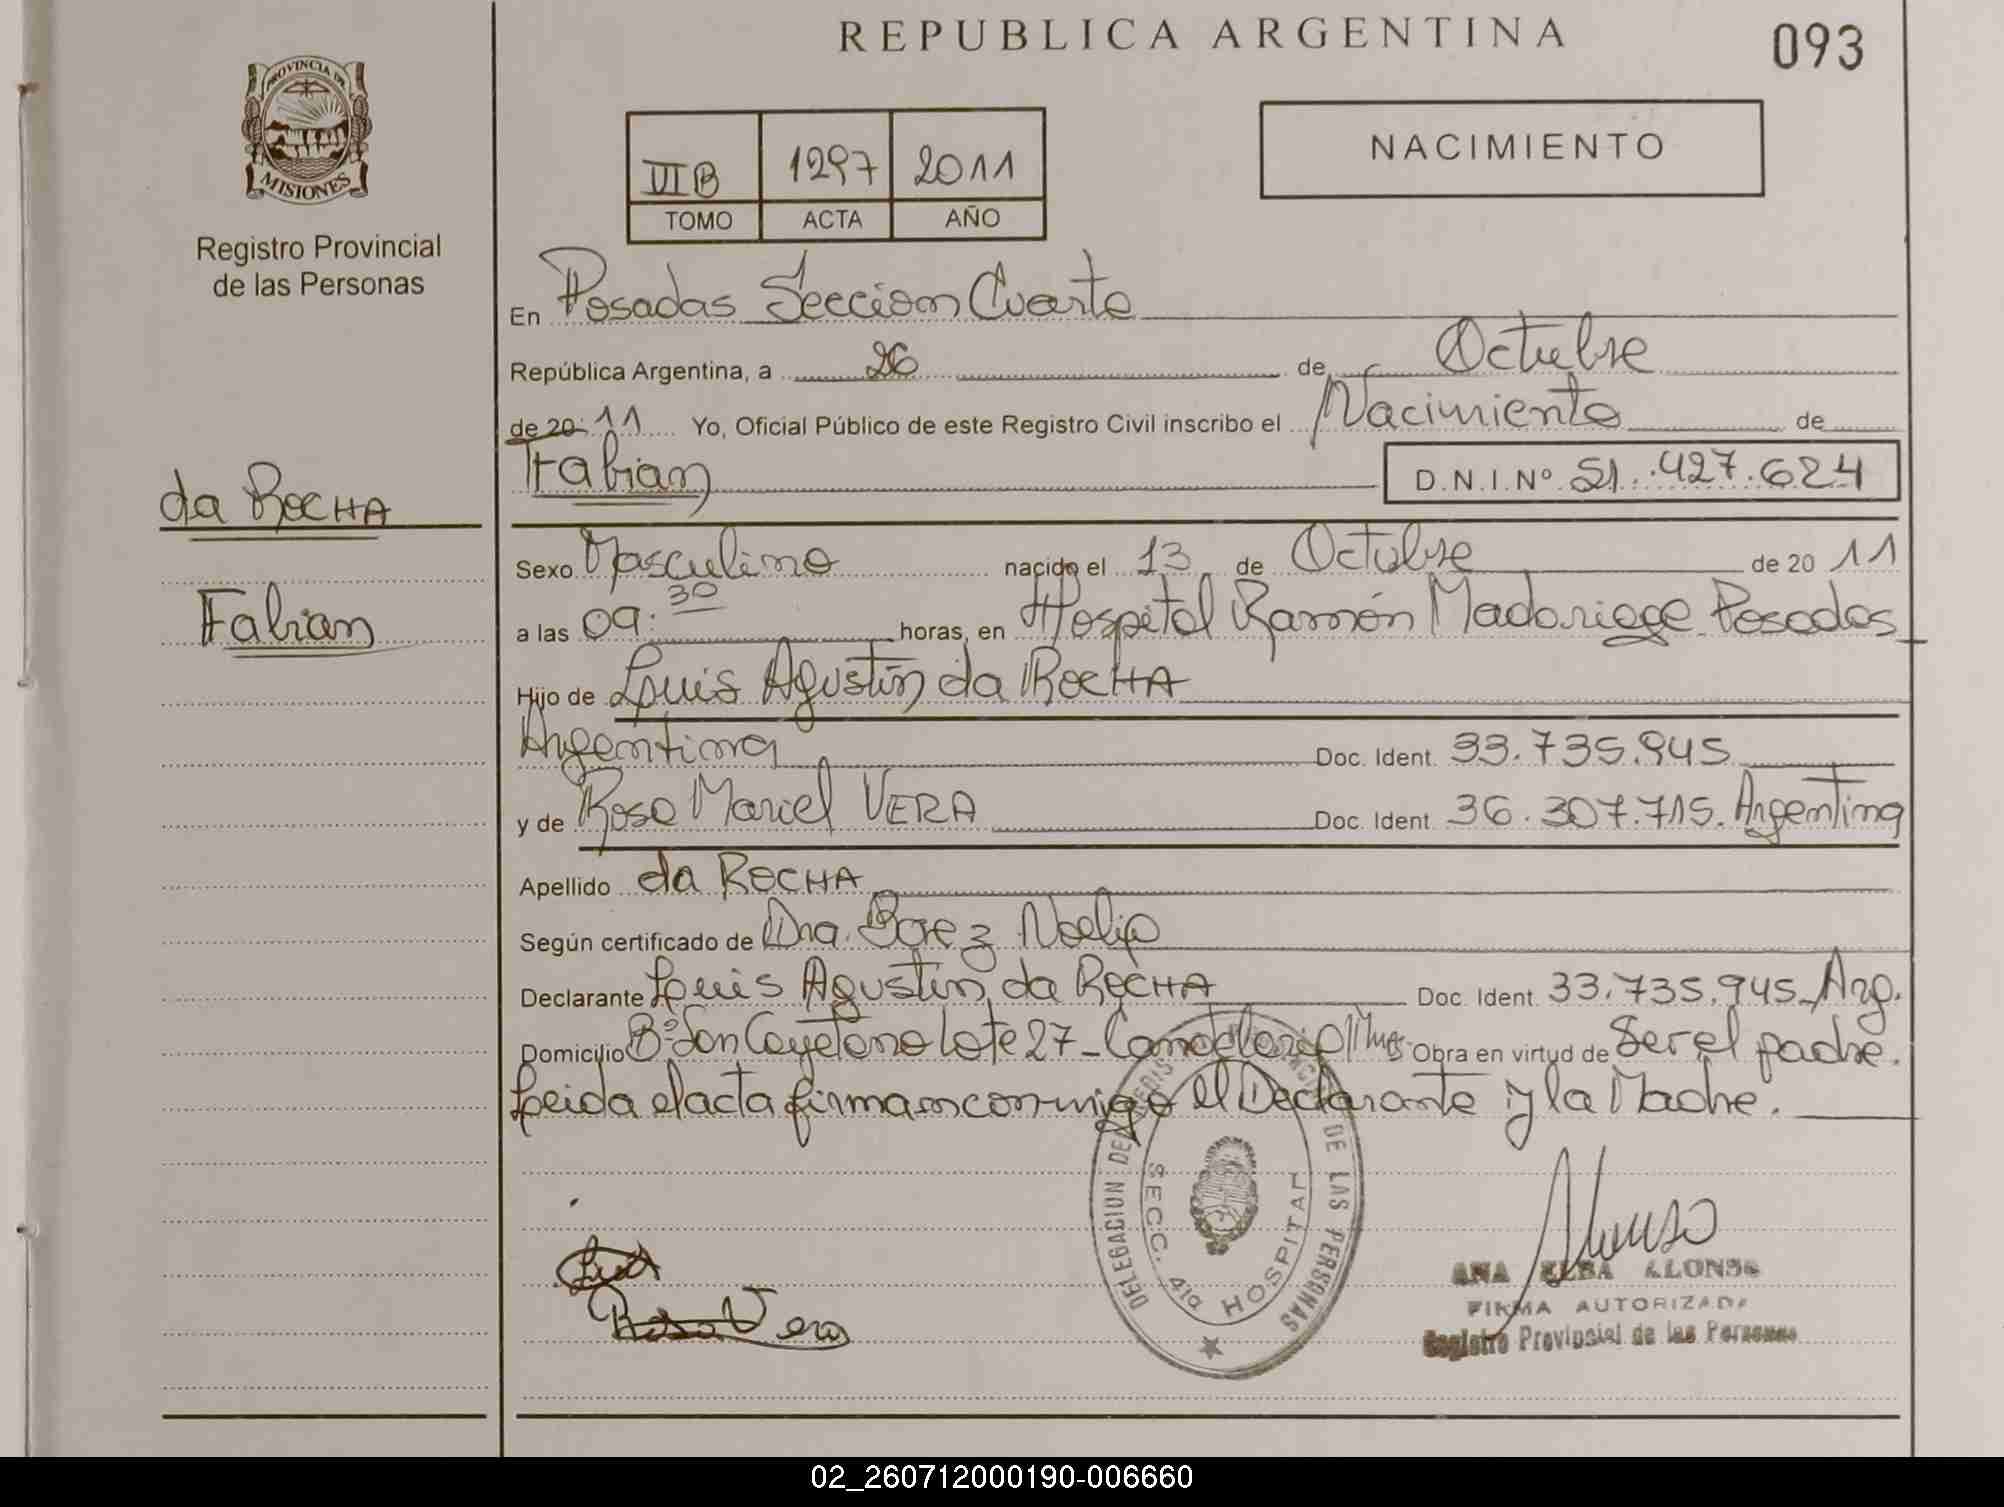 REPUBLICA ARGENTINA
093
PROVINCIA DE
MISIONES
Registro Provincial
de las Personas
VI B 1297 2011
TOMO ACTA AÑO
NACIMIENTO
En Posadas Seccion Cuarta
República Argentina, a 26 de Octubre
de 2011 Yo, Oficial Público de este Registro Civil inscribo el Nacimiento de
Fabian
D.N.I.Nº 51.427.624
da ROCHA
Fabian
Sexo Masculino nacido el 13 de Octubre de 2011
a las 09:30 horas, en Hospital Ramón Madariaga Posadas
Hijo de Luis Agustin da ROCHA
Argentina Doc. Ident. 33.735.945
y de Rosa Mariel VERA Doc. Ident. 36.307.715. Argentina
Apellido da ROCHA
Según certificado de Dra. Baez Noelia
Declarante Luis Agustin da ROCHA Doc. Ident. 33.735.945 Arg.
Domicilio Bº San Cayetano Lote 27 - Candelaria Mnes. Obra en virtud de Ser el padre.
Leida el acta firman conmigo el Declarante y la Madre.
DELEGACION DE LAS PERSONAS
SECC. 4ta HOSPITAL
Rosa Vera
ANA ELBA ALONSO
FIRMA AUTORIZADA
Registro Provincial de las Personas
02_260712000190-006660